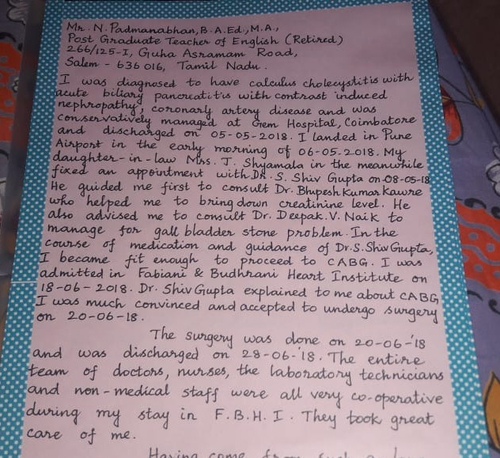 Mr. N. Padmanabhan, B.A.Ed., M.A.,
Post Graduate Teacher of English (Retired)
266/125-I, Guha Asramam Road,
Salem - 636 016, Tamil Nadu.
I was diagnosed to have calculus cholecystitis with
acute biliary pancreatitis with contrast induced
nephropathy, coronary artery disease and was
conservatively managed at Gem Hospital, Coimbatore
and discharged on 05-05-2018. I landed in Pune
Airport in the early morning of 06-05-2018. My
daughter-in-law Mrs. J. Shyamala in the meanwhile
fixed an appointment with Dr. S. Shiv Gupta on 08-05-18.
He guided me first to consult Dr. Bhupesh Kumar Kawre
who helped me to bring down creatinine level. He
also advised me to consult Dr. Deepak. V. Naik to
manage for gall bladder stone problem. In the
course of medication and guidance of Dr. S. Shiv Gupta,
I became fit enough to proceed to CABG. I was
admitted in Fabiani & Budhrani Heart Institute on
18-06-2018. Dr. Shiv Gupta explained to me about CABG
I was much convinced and accepted to undergo surgery
on 20-06-18.
The surgery was done on 20-06-'18
and was discharged on 28-06-'18. The entire
team of doctors, nurses, the laboratory technicians
and non-medical staff were all very co-operative
during my stay in F.B.H.I. They took great
care of me.
Having come from such a